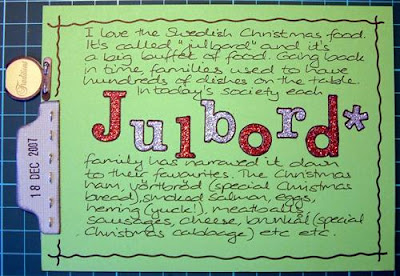 I love the Swedish Christmas food.
It's called "julbord" and it's
a big buffet of food. Going back
in time, families used to have
hundreds of dishes on the table.
In today's society each
Julbord*
family has narrowed it down
to their favourites. The Christmas
ham, vörtbröd (special Christmas
bread), smoked salmon, eggs,
herring (yuck!), meatballs
sausages, cheese, brunkål (special
Christmas cabbage) etc etc.
18 DEC 2007